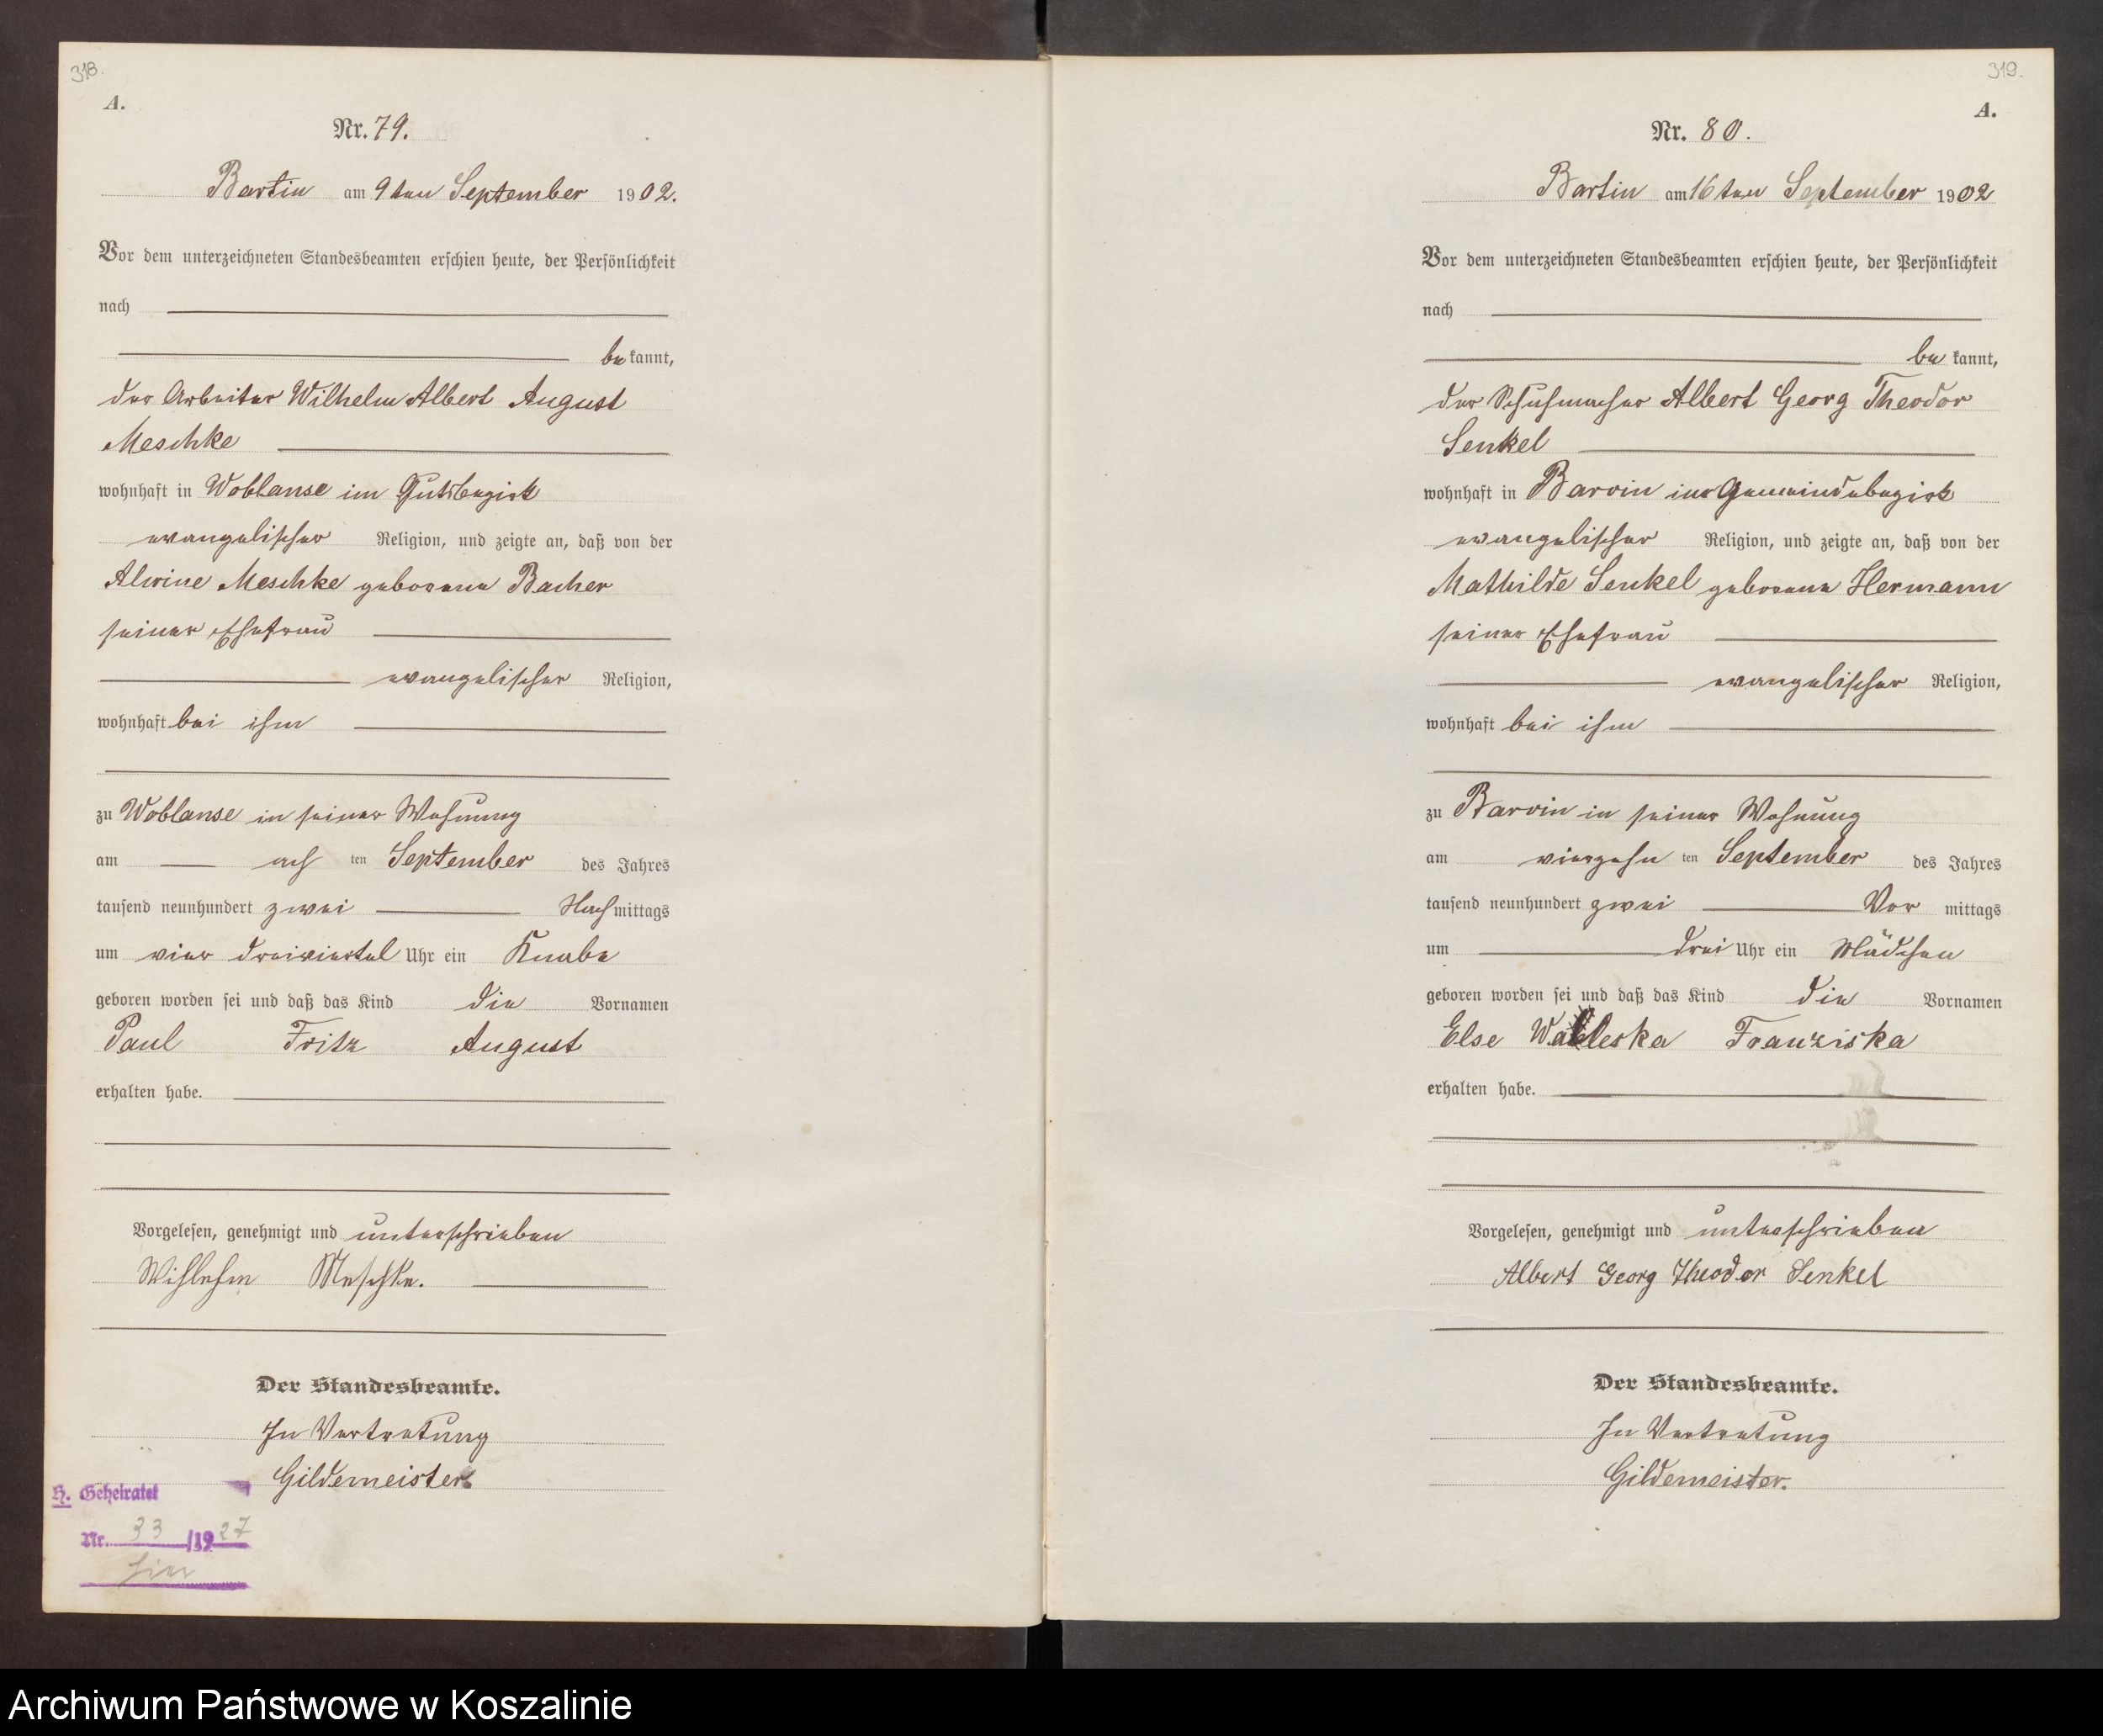 318.
A.
Nr. 79.
Bartin am 9ten September 1902.
Vor dem unterzeichneten Standesbeamten erschien heute, der Persönlichkeit
nach
bekannt,
der Arbeiter Wilhelm Albert August
Meschke
wohnhaft in Woblanse im Gutsbezirk
evangelischer Religion, und zeigte an, daß von der
Alwine Meschke geborene Bacher
seiner Ehefrau
evangelischer Religion,
wohnhaft bei ihm
zu Woblanse in seiner Wohnung
am ach ten September des Jahres
tausend neunhundert zwei Nachmittags
um vier dreiviertel Uhr ein Knabe
geboren worden sei und daß das Kind die Vornamen
Paul Fritz August
erhalten habe.
Vorgelesen, genehmigt und unterschrieben
Wilhelm Meschke.
Der Standesbeamte.
In Vertretung
Gildemeister
H. Geheiratet
Nr. 33 /1927
hier
319.
A.
Nr. 80.
Bartin am 16ten September 1902
Vor dem unterzeichneten Standesbeamten erschien heute, der Persönlichkeit
nach
bekannt,
der Schuhmacher Albert Georg Theodor
Senkel
wohnhaft in Barvin im Gemeindebezirk
evangelischer Religion, und zeigte an, daß von der
Mathilde Senkel geborene Hermann
seiner Ehefrau
evangelischer Religion,
wohnhaft bei ihm
zu Barvin in seiner Wohnung
am vierzehn ten September des Jahres
tausend neunhundert zwei Vor mittags
um drei Uhr ein Mädchen
geboren worden sei und daß das Kind die Vornamen
Else Walleska Franziska
erhalten habe.
Vorgelesen, genehmigt und unterschrieben
Albert Georg Theodor Senkel
Der Standesbeamte.
In Vertretung
Gildemeister.
Archiwum Państwowe w Koszalinie